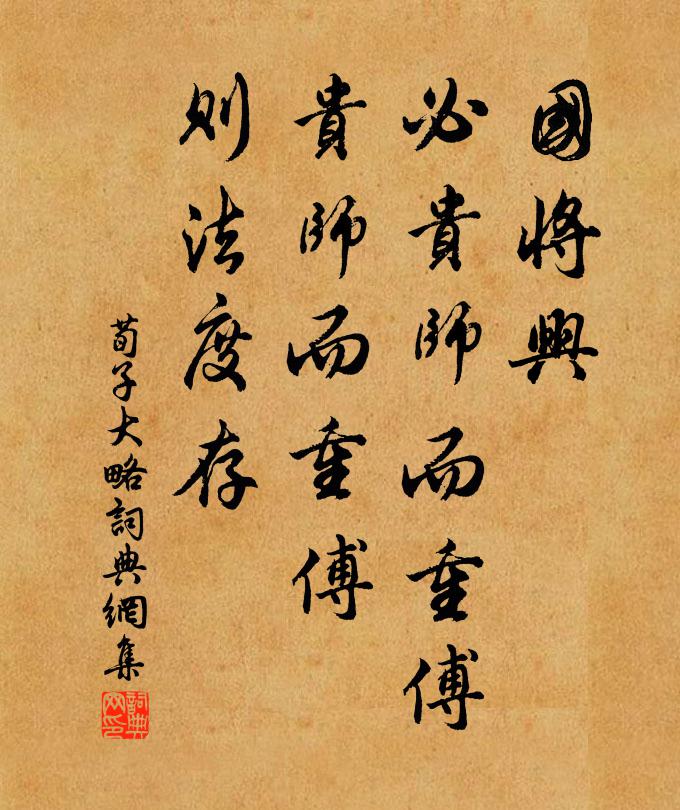 國將興
必貴師而重傅
貴師而重傅
則法度存
荀子大略詞典網集
詞典
网印